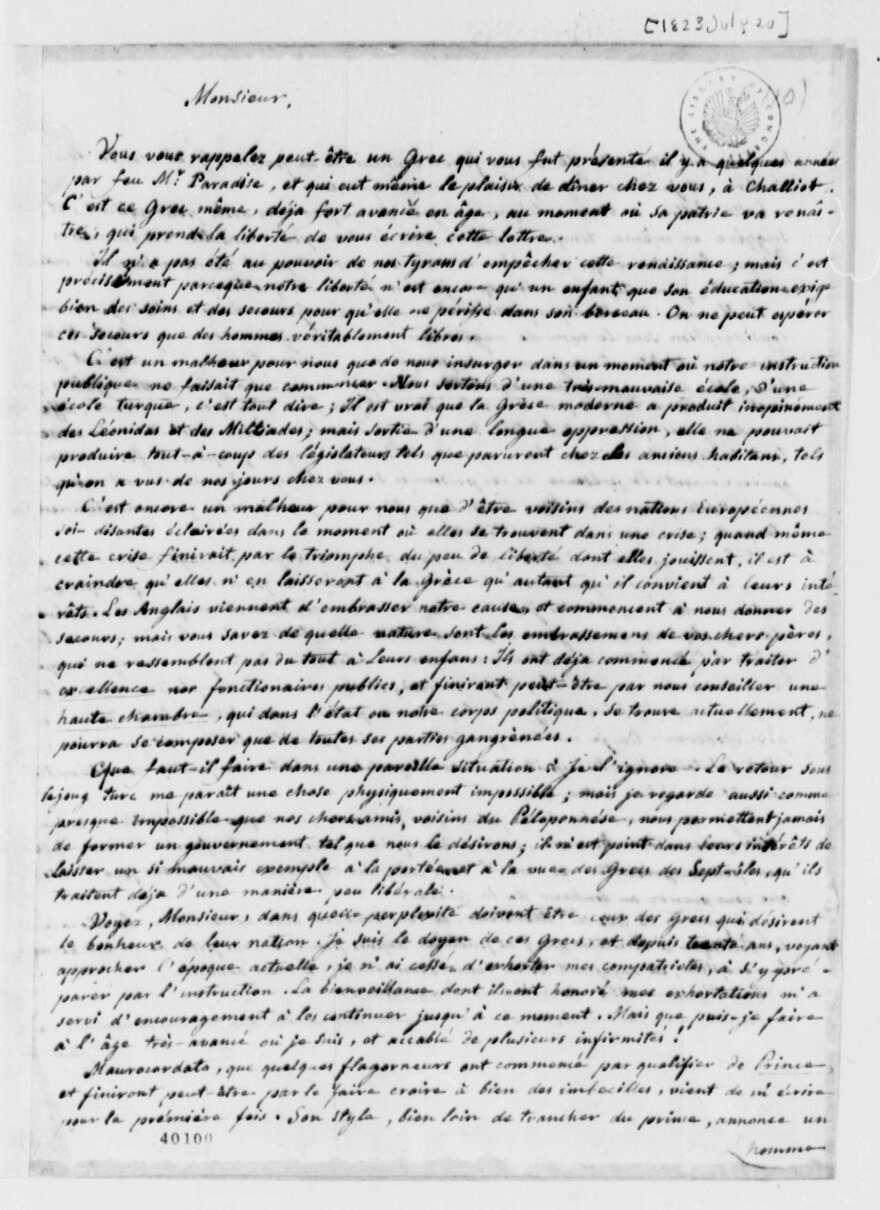 [1823 July 20]
Monsieur,
Vous vous rappelez peut-être un Grec qui vous fut présenté il y a quelques années
par feu Mr. Paradise, et qui eut même le plaisir de dîner chez vous, à Challiot.
C'est ce Grec même, déja fort avancé en âge, au moment où sa patrie va renâi-
tre, qui prend la liberté de vous écrire cette lettre.
Il n'a pas été au pouvoir de nos tyrans d'empêcher cette renaissance; mais c'est
précisément parceque notre liberté n'est encore qu'un enfant que son éducation exige
bien des soins et des secours pour qu'elle ne périsse dans son berceau. On ne peut espérer
ces secours que des hommes véritablement libres.
C'est un malheur pour nous que de nous insurger dans un moment où notre instruction
publique ne faisait que commencer. Nous sortons d'une très-mauvaise école, d'une
école turque, c'est tout dire; Il est vrai que la Grèce moderne a produit inopinément
des Léonidas et des Miltiades; mais sortie d'une longue oppression, elle ne pouvait
produire tout-à-coup des législateurs tels que parurent chez les anciens habitans, tels
qu'on a vus de nos jours chez vous.
C'est encore un malheur pour nous que d'être voisins des nations Européennes
soi-disantes éclairées dans le moment où elles se trouvent dans une crise; quand même
cette crise finirait par le triomphe du peu de liberté dont elles jouissent, il est à
craindre qu'elles n'en laisseront à la Grèce qu'autant qu'il convient à leurs inté-
rêts. Les Anglais viennent d'embrasser notre cause, et commencent à nous donner des
secours; mais vous savez de quelle nature sont les embrassemens de vos chers pères,
qui ne ressemblent pas du tout à leurs enfans: Ils ont déja commencé par traiter d'
excellence nos fonctionaires publics, et finiront peut-être par nous conseiller une
haute chambre, qui dans l'état où notre corps politique se trouve actuellement, ne
pourra se composer que de toutes ses parties gangrènées.
Que faut-il faire dans une pareille situation? Je l'ignore. Le retour sous
le joug turc me paraît une chose physiquement impossible; mais je regarde aussi comme
presque impossible que nos chers amis, voisins du Péloponnèse, nous permettent jamais
de former un gouvernement tel que nous le désirons; il n'est point dans leurs intérêts de
laisser un si mauvais exemple à la portée et à la vue des Grecs des Sept-îles, qu'ils
traitent déja d'une manière peu libérale.
Voyez, Monsieur, dans quelle perplexité doivent être ceux des Grecs qui désirent
le bonheur de leur nation. Je suis le doyen de ces Grecs, et depuis trente ans, voyant
approcher l'époque actuelle, je n'ai cessé d'exhorter mes compatriotes, à s'y pré-
parer par l'instruction. La bienveillance dont ils ont honoré mes exhortations m'a
servi d'encouragement à les continuer jusqu'à ce moment. Mais que puis-je faire
à l'âge très-avancé où je suis, et accablé de plusieurs infirmités!
Maurocordato, que quelques flagorneurs ont commencé par qualifier de Prince,
et finiront peut-être par le faire croire à bien des imbecilles, vient de m'écrire
pour la prémière fois. Son style, bien loin de trancher du prince, annonce un
homme
40100